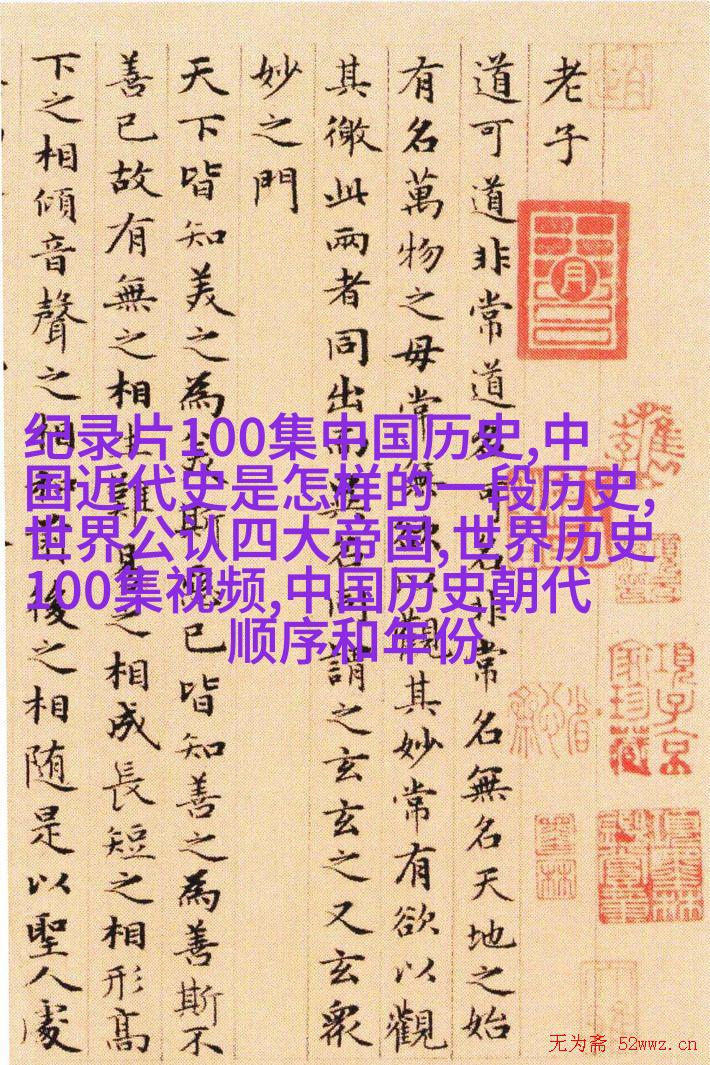 老子
道可道非常道名可名非常名無名天地之始
有名萬物之母常無欲以觀其妙常有欲以觀
其徼此兩者同出而異名同謂之玄玄之又玄眾
妙之門
天下皆知美之為美斯惡已皆知善之為善斯不
善已故有無之相生難易之相成長短之相形高
下之相傾音聲之相和前後之相随是以聖人處
纪录片100集中国历史,中
国近代史是怎样的一段历史,
世界公认四大帝国,世界历史
100集视频,中国历史朝代
顺序和年份
項子京
家珍藏
无为斋 52wwz.cn